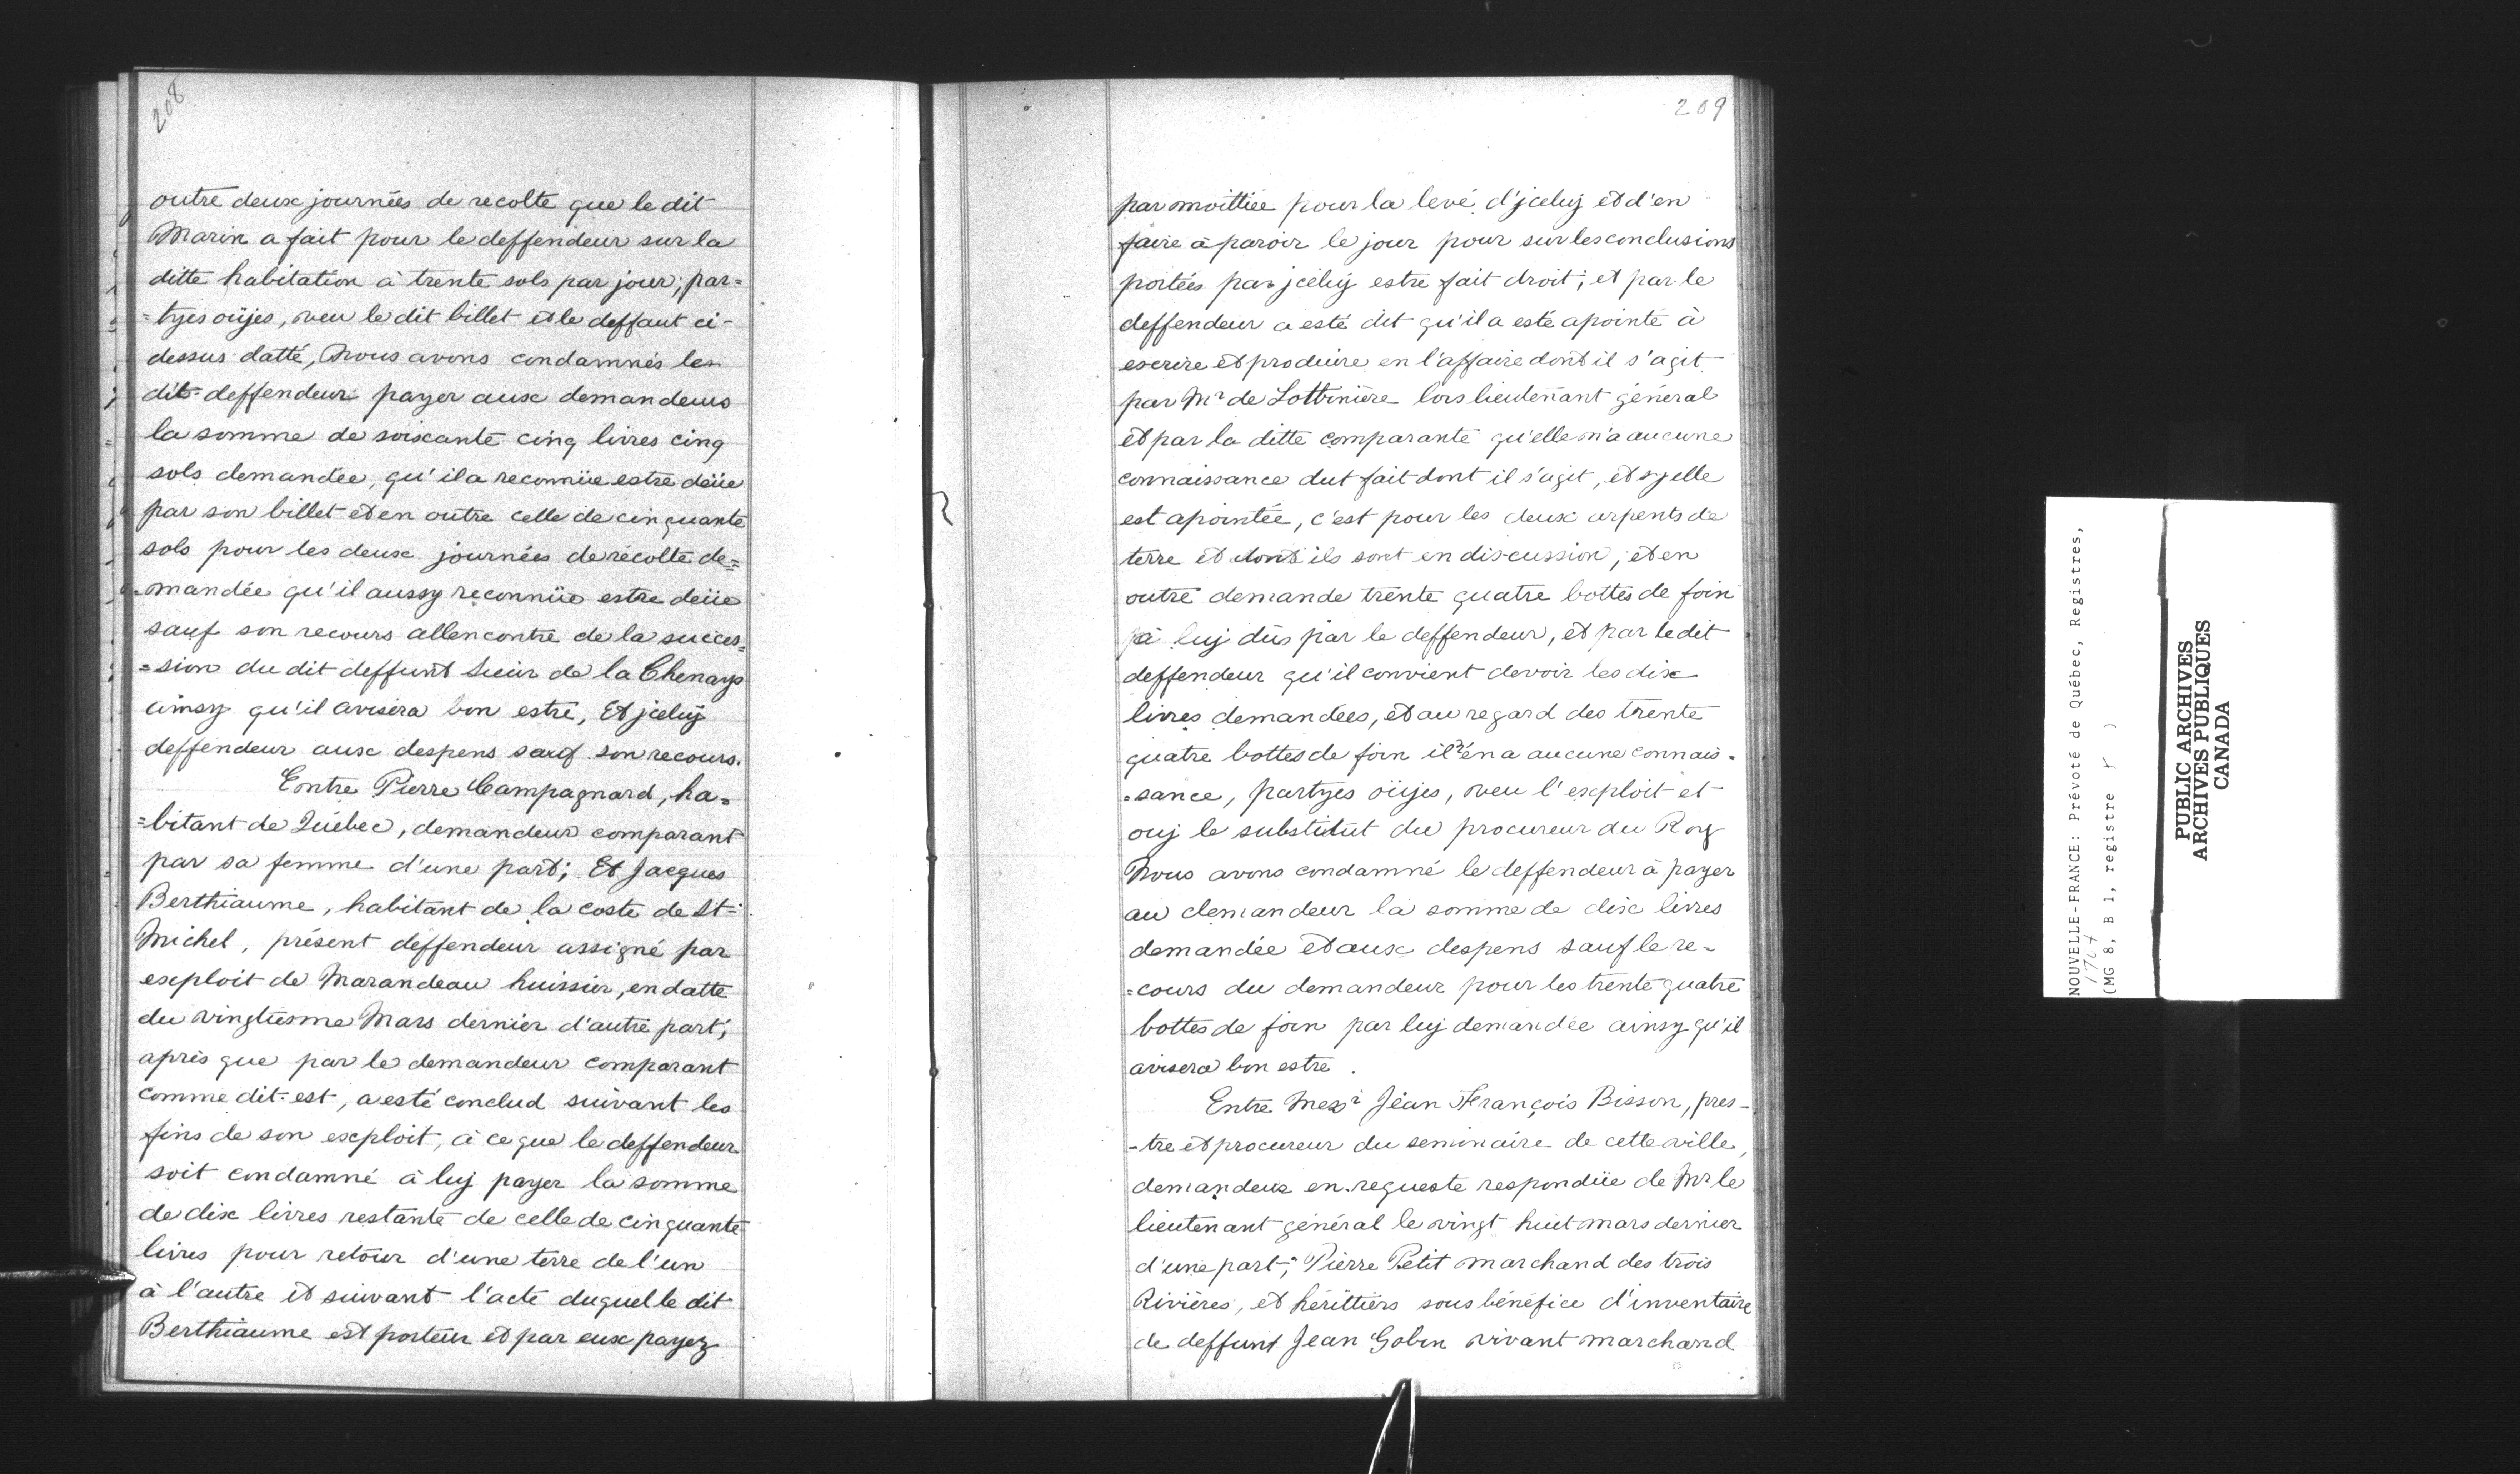 208
outre deux journées de recolte que le dit
Marin a fait pour le deffendeur sur la
ditte habitation à trente sols par jour; par=
=tyes oüjes, veu le dit billet et le deffaut ci-
dessus datté, Nous avons condamnés les
dits deffendeur payer aux demandeurs
la somme de soixante cinq livres cinq
sols demandée, qu'il a reconnüe estre deüe
par son billet et en outre celle de cinquante
sols pour les deux journées de récolte de=
=mandée qu'il aussy reconnüe estre deüe
sauf son recours allencontre de la succes=
=sion du dit deffunt Sieur de la Chenays
ainsy qu'il avisera bon estre, Et jceluy
deffendeur aux despens sauf son recours.
Entre Pierre Campagnard, ha=
=bitant de Québec, demandeur comparant
par sa femme d'une part; Et Jacques
Berthiaume, habitant de la coste de St-
Michel, présent deffendeur assigné par
exploit de Marandeau huissier, en datte
du vingtiesme Mars dernier d'autre part;
après que par le demandeur comparant
comme dit est, a esté conclud suivant les
fins de son exploit, à ce que le deffendeur
soit condamné à luy payer la somme
de dix livres restante de celle de cinquante
livres pour retour d'une terre de l'un
à l'autre et suivant l'acte duquel le dit
Berthiaume est porteur et par eux payez
209
par moittiée pour la levé d'jceluj et d'en
faire à paroir le jour pour sur les conclusions
portées par jceluy estre fait droit; et par le
deffendeur a esté dit qu'il a esté apointé à
escrire et produire en l'affaire dont il s'agit
par Mr de Lotbinière lors lieutenant général
et par la ditte comparante qu'elle n'a aucune
connaissance dut fait dont il s'agit, et sy elle
est apointée, c'est pour les deux arpents de
terre et dont ils sont en discussion, et en
outre demande trente quatre bottes de foin
à luj düs par le deffendeur, et par le dit
deffendeur qu'il convient devoir les dix
livres demandées, et au regard des trente
quatre bottes de foin il n'en a aucune connais-
=sance, partyes oüjes, veu l'exploit et
ouj le substitut du procureur du Roy
Nous avons condamné le deffendeur à payer
au demandeur la somme de dix livres
demandée et aux despens sauf le re-
=cours du demandeur pour les trente quatre
bottes de foin par luj demandée ainsy qu'il
avisera bon estre.
Entre Messr Jean François Bisson, pres-
-tre et procureur du seminaire de cette ville,
demandeur en requeste respondüe de Mr le
lieutenant général le vingt huit mars dernier
d'une part; Pierre Petit marchand des trois
Rivières, et hérittiers sous bénéfice d'inventaire
de deffunt Jean Gobin vivant marchand
NOUVELLE-FRANCE: Prévoté de Québec, Registres,
1707
(MG 8, B 1, registre )
PUBLIC ARCHIVES
ARCHIVES PUBLIQUES
CANADA